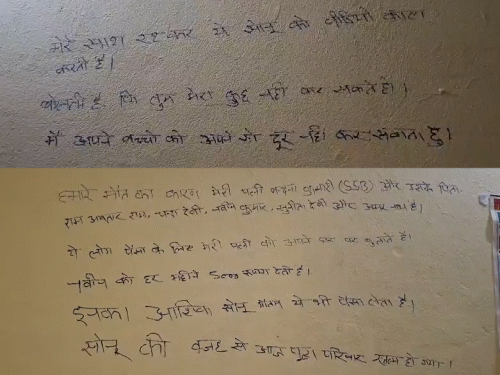 मेरे साथ रहकर ये सोनू को वीडियो काल
करती है।
बोलती है कि तुम मेरा कुछ नही कर सकते हो।
मैं अपने बच्चो को अपने से दूर नही कर सकता हु।
हमारे मौत का कारण मेरी पत्नी कुमारी (SSB) और उसके पिता
राम अवतार राम, चन्दा देवी, नवीन कुमार, सुनीता देवी और अमर
ये लोग पैसा के लिए मेरी पत्नी को अपने घर पर बुलाते है।
नवीन को हर महीने 5000 रूपया देती है।
इनका आशिक सोनू ये भी पैसा लेता है।
सोनू की वजह से आज पूरा परिवार खत्म हो गया।